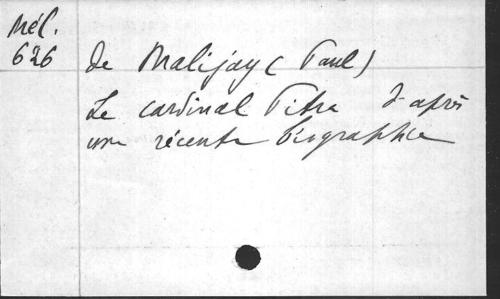 Mél.
626
de Malijay (Paul)
Le cardinal Pitra d'après
une récente biographie